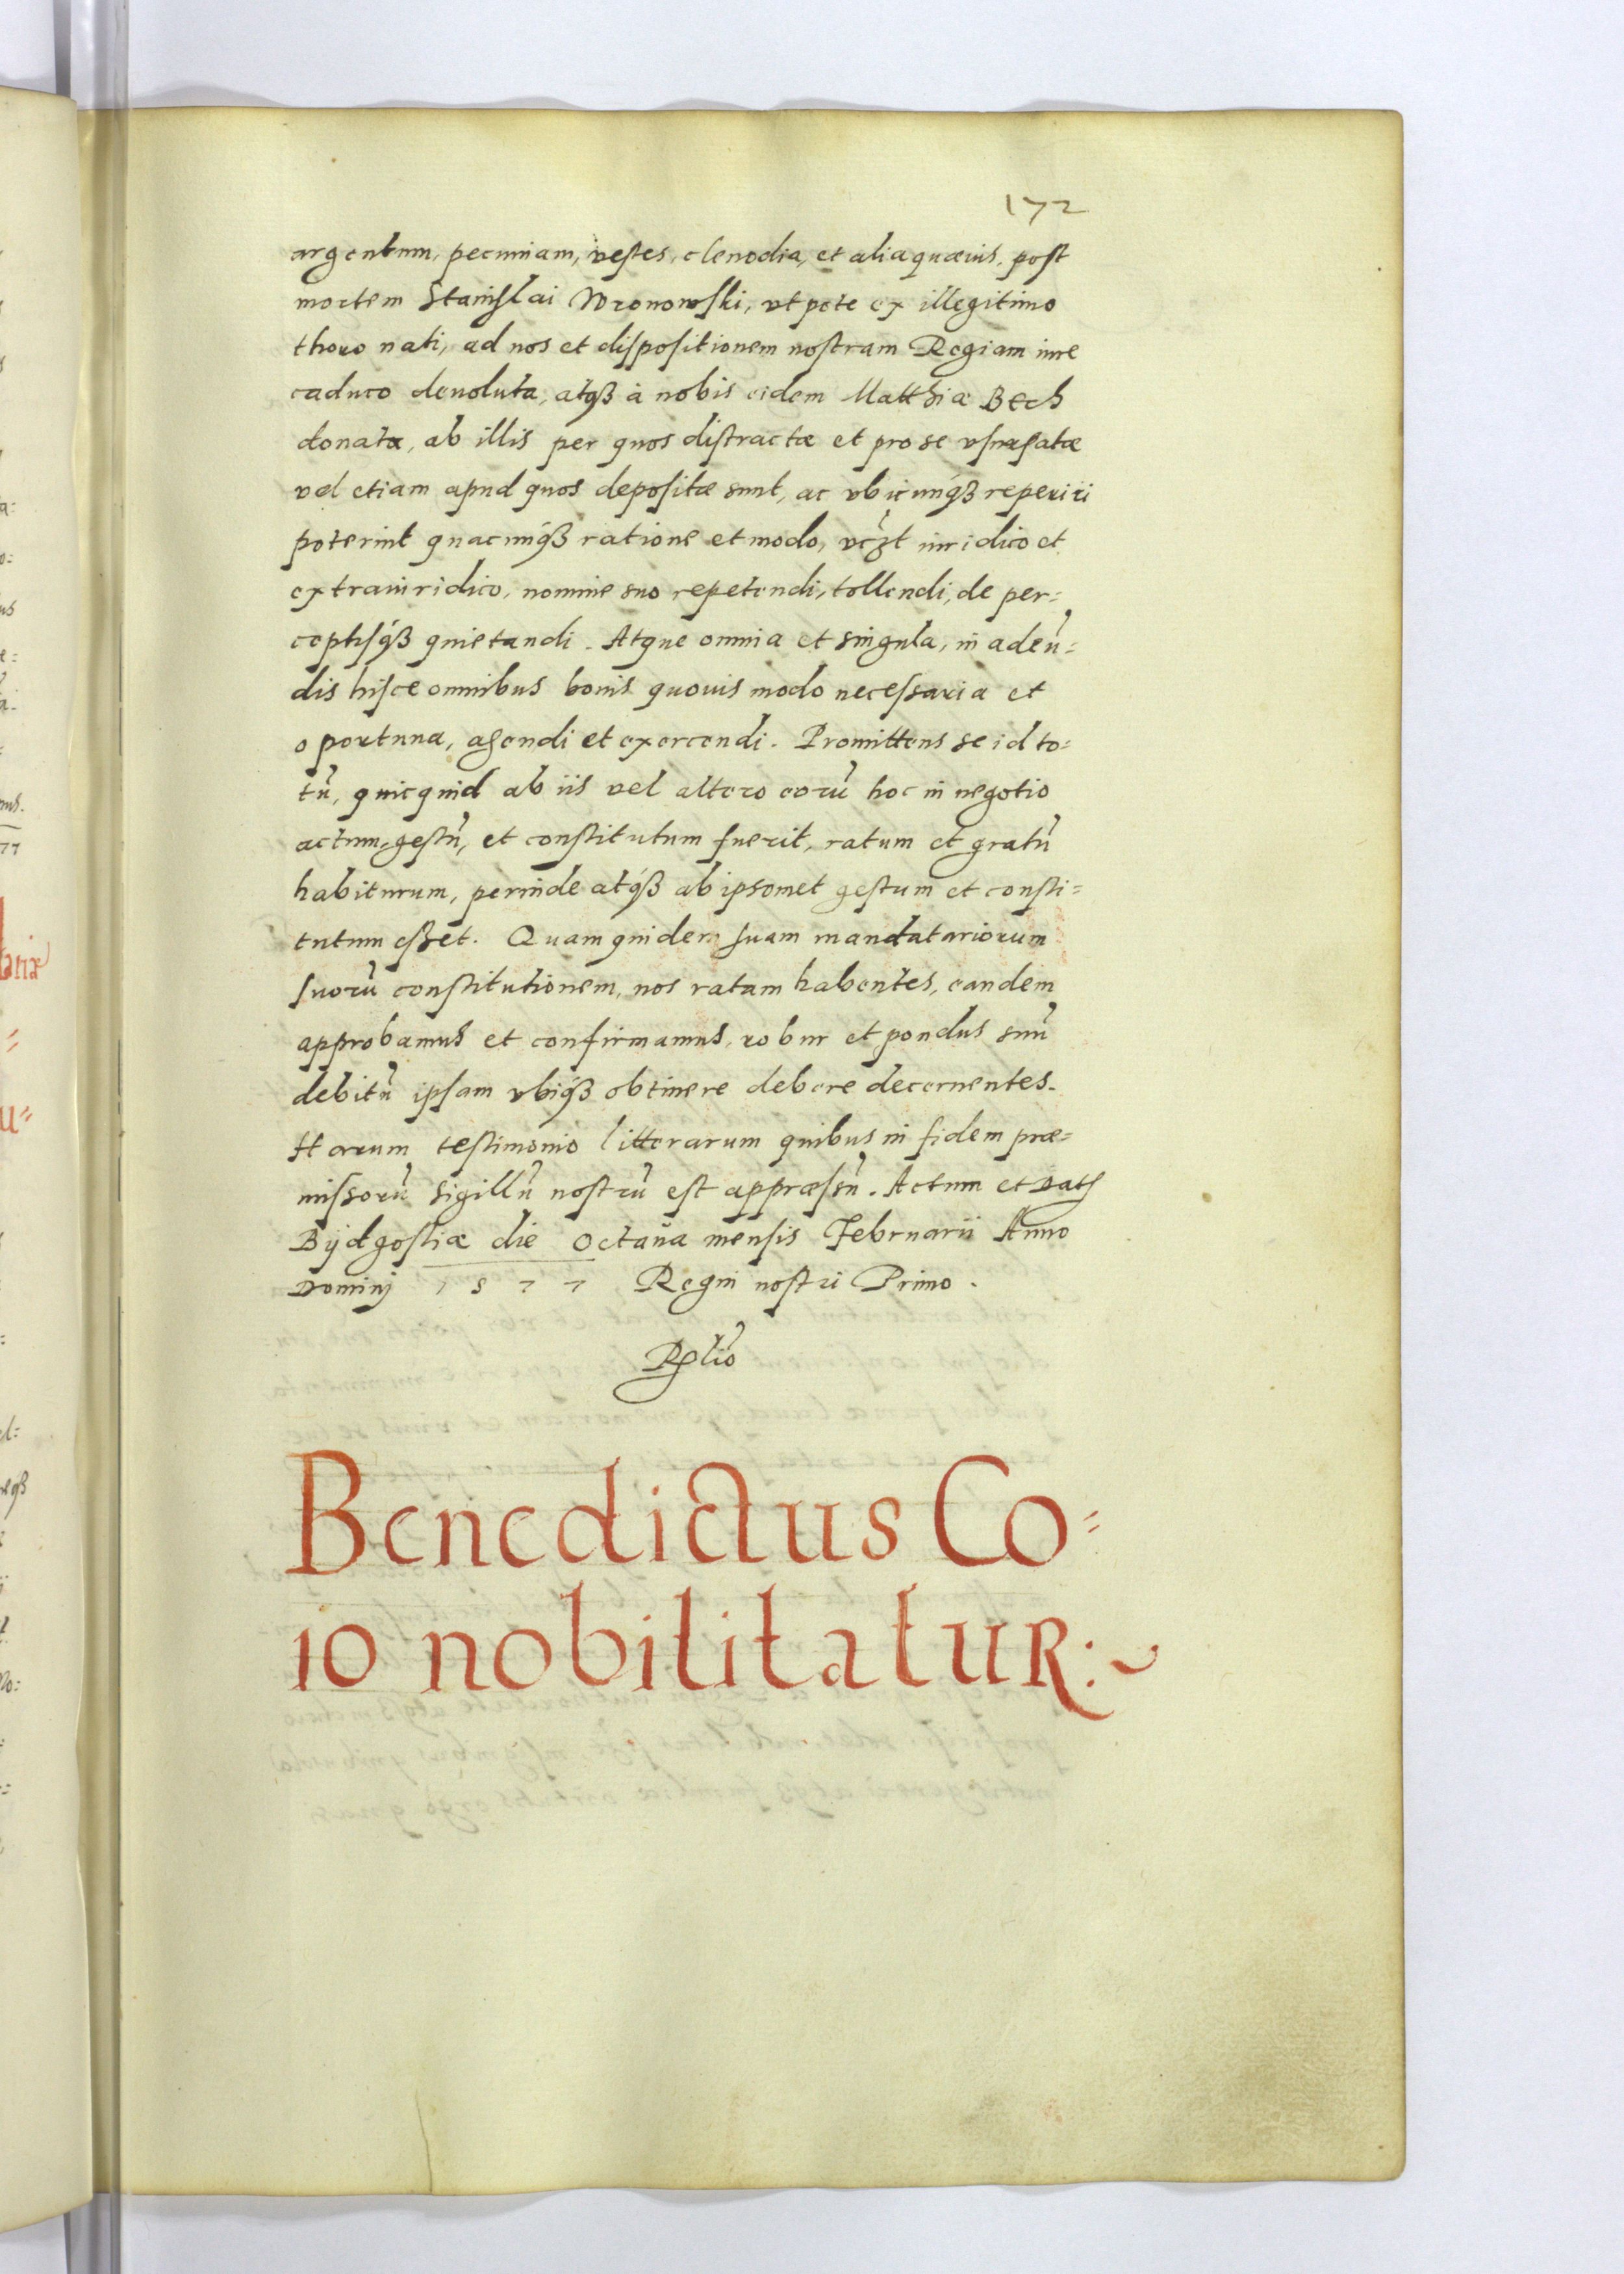 172
argentum, pecuniam, vestes, clenodia, et alia quævis, post
mortem Stanislai Wronowski, vt pote ex illegitimo
thoro nati, ad nos et dispositionem nostram Regiam iure
caduco devoluta, atqȝ à nobis eidem Matthiæ Bech
donatæ, ab illis per quos distractæ et pro se vsurpatæ
vel etiam apud quos depositæ sunt, ac vbicunqȝ reperiri
poterint quacunqȝ ratione et modo, iuridico et
extraiuridico, nomine suo repetendi, tollendi, de per=
ceptisqȝ quietandi. Atque omnia et singula, in adeū=
dis hisce omnibus bonis quovis modo necessaria et
oportuna, agendi et exercendi. Promittens se id to=
tū, quicquid ab iis vel altero eorū hoc in negotio
actum, gestū, et constitutum fuerit, ratum et gratū
habiturum, perinde atqȝ ab ipsomet gestum et consti=
tutum esset. Quam quidem suam mandatariorum
suorū constitutionem, nos ratam habentes, eandem
approbamus et confirmamus, robur et pondus suū
debitū ipsam vbiqȝ obtinere debere decernentes.
Harum testimonio litterarum quibus in fidem præ=
missorū sigillū nostrū est appræssū. Actum et Datę
Bydgostiæ die Octava mensis Februarii Anno
Dominj 1577 Regni nostri Primo.
Benedictus Co=
io nobilitatur:~